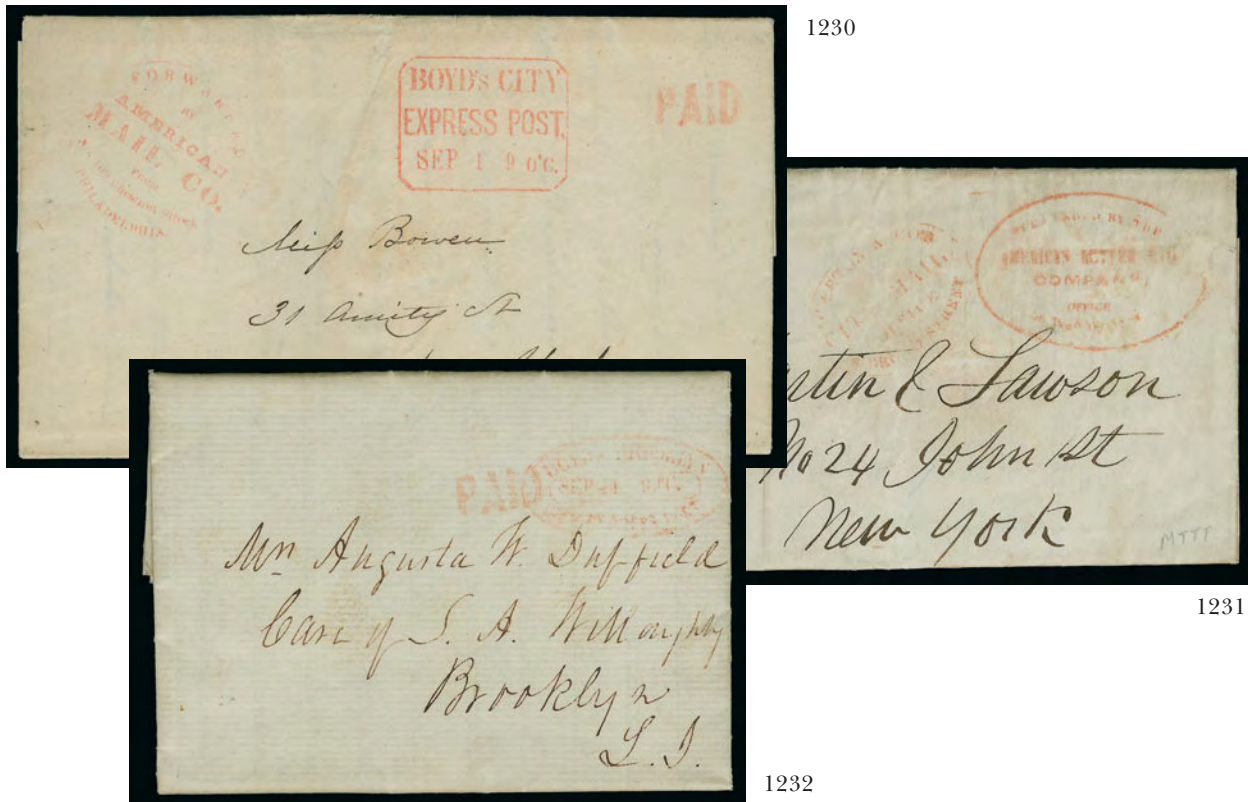 1230
FORWARDED
BY
AMERICAN
MAIL CO.
From
Chesnut Street
PHILADELPHIA
BOYD'S CITY
EXPRESS POST.
SEP 1 9 O'C.
PAID
Miss Bowen
31 Amity St
BY THE
AMERICAN LETTER MAIL
COMPANY,
OFFICE
MAIL
STREET
& Lawson
No 24 John St
New York
MTTT
1231
PAID
SEP
Mrs Augusta W. Duffield
Care of S. A. Willoughby
Brooklyn
L. I.
1232